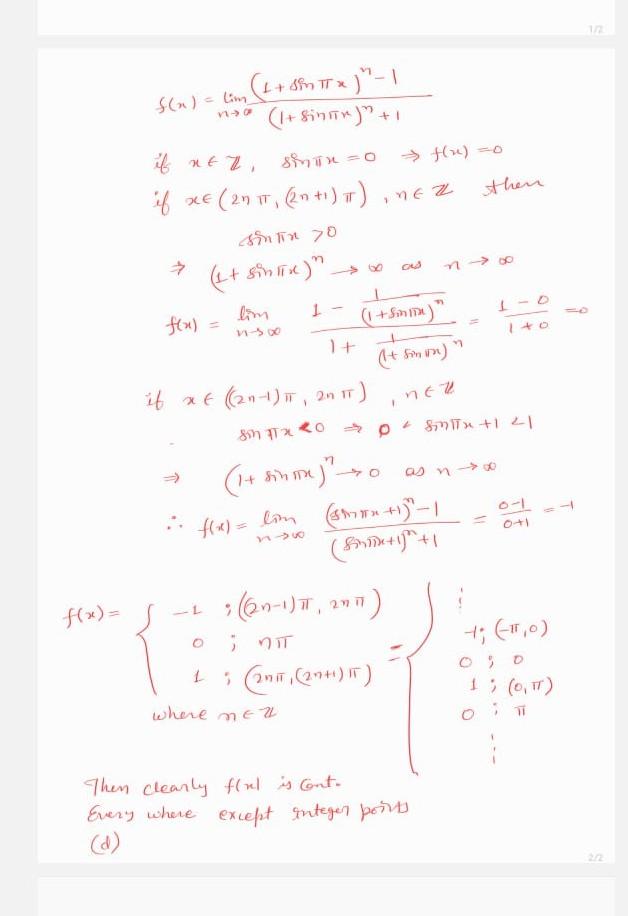 1/2
f(x) = lim n→∞ ((1 + sin πx)^n - 1) / ((1 + sin πx)^n + 1)
if x ∈ ℤ, sin πx = 0 ⇒ f(x) = 0
if x ∈ (2nπ, (2n+1)π), n ∈ ℤ then
sin πx > 0
⇒ (1 + sin πx)^n → ∞ as n → ∞
f(x) = lim n→∞ (1 - 1/(1 + sin πx)^n) / (1 + 1/(1 + sin πx)^n) = (1 - 0)/(1 + 0) = 0
if x ∈ ((2n-1)π, 2nπ), n ∈ ℤ
sin πx < 0 ⇒ 0 < sin πx + 1 < 1
⇒ (1 + sin πx)^n → 0 as n → ∞
∴ f(x) = lim n→∞ ((sin πx + 1)^n - 1) / ((sin πx + 1)^n + 1) = (0 - 1)/(0 + 1) = -1
f(x) = { -1 ; ((2n-1)π, 2nπ)
0 ; nπ
1 ; (2nπ, (2n+1)π)
where n ∈ ℤ
= { ⋮
-1; (-π, 0)
0 ; 0
1 ; (0, π)
0 ; π
⋮
Then clearly f(x) is cont.
Every where except integer points
(d)
2/2